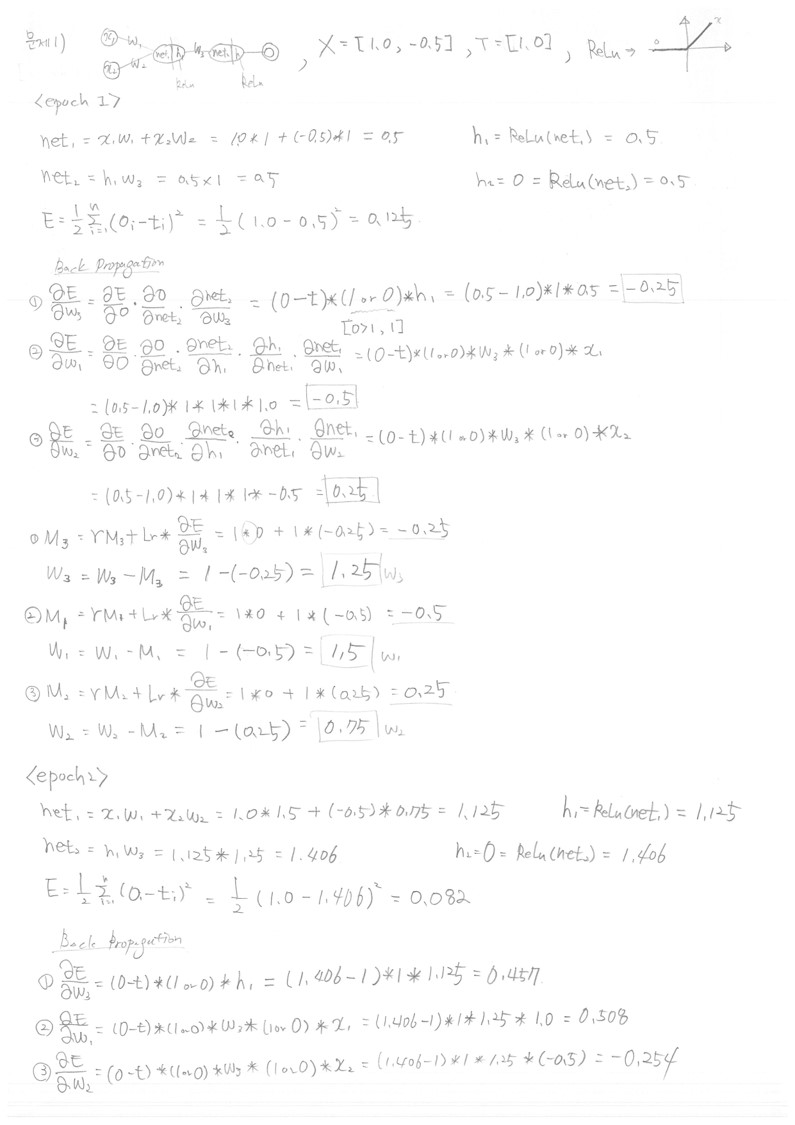 문제1) x₁ w₁ x₂ w₂ net₁ h₁ w₃ net₂ h₂ O Relu Relu , X = [1.0, -0.5] , T = [1.0] , ReLu → 0 x
<epoch 1>
net₁ = x₁w₁ + x₂w₂ = 1.0*1 + (-0.5)*1 = 0.5 h₁ = ReLu(net₁) = 0.5
net₂ = h₁w₃ = 0.5×1 = 0.5 h₂ = O = ReLu(net₂) = 0.5
E = 1/2 Σᵢ₌₁ⁿ (Oᵢ-tᵢ)² = 1/2 (1.0-0.5)² = 0.125
Back Propagation
① ∂E/∂w₃ = ∂E/∂O · ∂O/∂net₂ · ∂net₂/∂w₃ = (O-t)*(1 or 0)*h₁ = (0.5-1.0)*1*0.5 = -0.25
[0>1, 1]
② ∂E/∂w₁ = ∂E/∂O · ∂O/∂net₂ · ∂net₂/∂h₁ · ∂h₁/∂net₁ · ∂net₁/∂w₁ = (O-t)*(1 or 0)*w₃*(1 or 0)*x₁
= (0.5-1.0)*1*1*1*1.0 = -0.5
③ ∂E/∂w₂ = ∂E/∂O · ∂O/∂net₂ · ∂net₂/∂h₁ · ∂h₁/∂net₁ · ∂net₁/∂w₂ = (O-t)*(1 or 0)*w₃*(1 or 0)*x₂
= (0.5-1.0)*1*1*1*-0.5 = 0.25
① M₃ = rM₃ + Lr* ∂E/∂w₃ = 1*0 + 1*(-0.25) = -0.25
W₃ = W₃ - M₃ = 1-(-0.25) = 1.25 w₃
② M₁ = rM₁ + Lr* ∂E/∂w₁ = 1*0 + 1*(-0.5) = -0.5
W₁ = W₁ - M₁ = 1-(-0.5) = 1.5 w₁
③ M₂ = rM₂ + Lr* ∂E/∂w₂ = 1*0 + 1*(0.25) = 0.25
W₂ = W₂ - M₂ = 1-(0.25) = 0.75 w₂
<epoch2>
net₁ = x₁w₁ + x₂w₂ = 1.0*1.5 + (-0.5)*0.75 = 1.125 h₁ = ReLu(net₁) = 1.125
net₂ = h₁w₃ = 1.125*1.25 = 1.406 h₂ = O = ReLu(net₂) = 1.406
E = 1/2 Σᵢ₌₁ⁿ (Oᵢ-tᵢ)² = 1/2 (1.0-1.406)² = 0.082
Back Propagation
① ∂E/∂w₃ = (O-t)*(1 or 0)*h₁ = (1.406-1)*1*1.125 = 0.457
② ∂E/∂w₁ = (O-t)*(1 or 0)*w₃*(1 or 0)*x₁ = (1.406-1)*1*1.25*1.0 = 0.508
③ ∂E/∂w₂ = (O-t)*(1 or 0)*w₃*(1 or 0)*x₂ = (1.406-1)*1*1.25*(-0.5) = -0.254